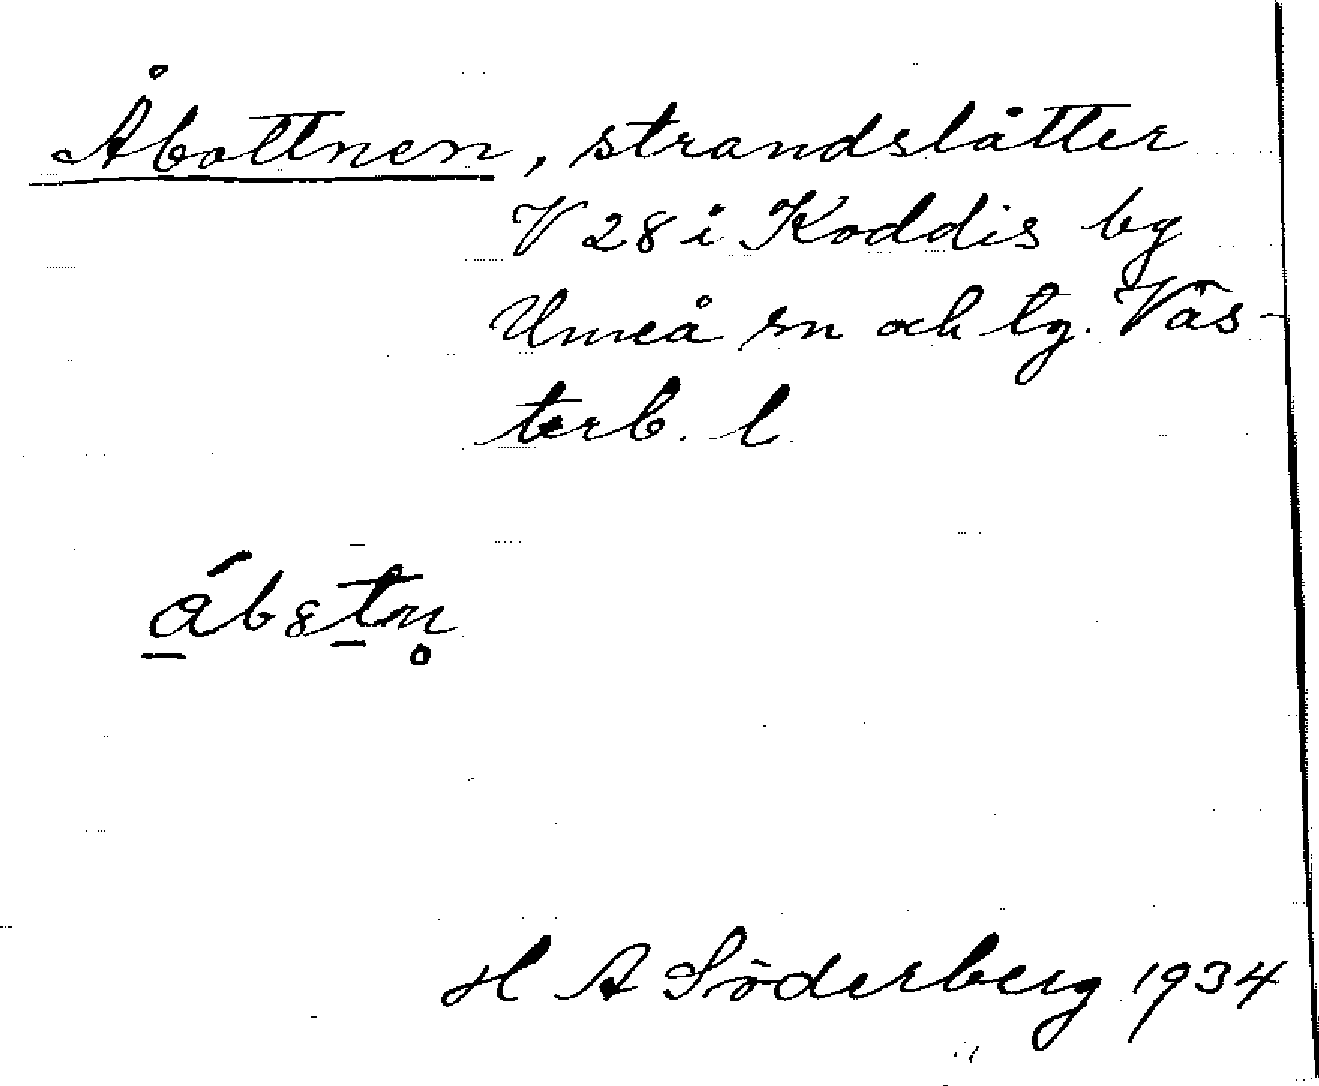 Åbottnen, strandslåtter
V 28 i Koddis by
Umeå sn och tg. Väs-
terb. l
H A Söderberg 1934